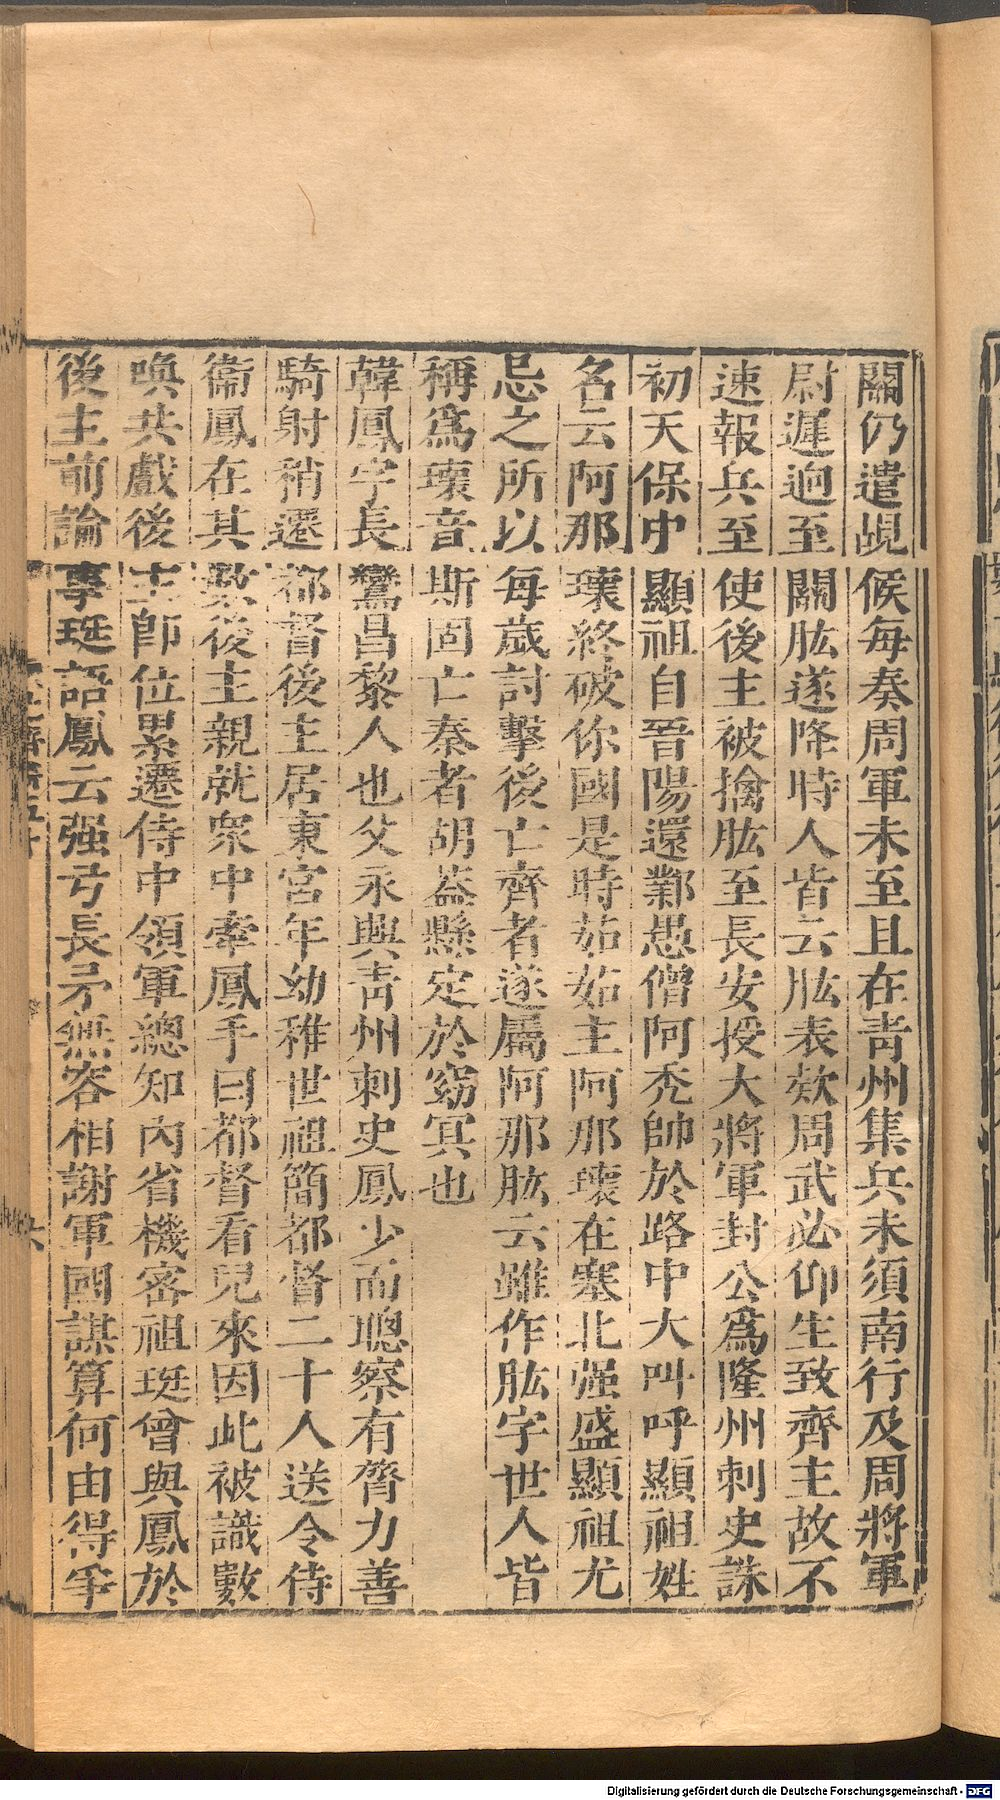 關仍遣覘候每奏周軍未至且在青州集兵未須南行及周將軍
尉遲迥至關肱遂降時人皆云肱表欸周武必仰生致齊主故不
速報兵至使後主被擒肱至長安授大將軍封公爲隆州刺史誅
初天保中顯祖自晉陽還鄴愚僧阿禿帥於路中大叫呼顯祖姓
名云阿那瓌終破你國是時茹茹主阿那瓌在塞北强盛顯祖尤
忌之所以每歲討擊後亡齊者遂屬阿那肱云雖作肱字世人皆
稱爲瓌音斯固亡秦者胡葢懸定於窈冥也
韓鳳字長鸞昌黎人也父永興青州刺史鳳少而聰察有膂力善
騎射稍遷都督後主居東宮年幼稚世祖簡都督二十人送令侍
衞鳳在其數後主親就衆中牽鳳手曰都督看兒來因此被識數
喚共戲後主卽位累遷侍中領軍總知內省機密祖珽曾與鳳於
後主前論事珽語鳳云强弓長矛無容相謝軍國謀算何由得爭
六
Digitalisierung gefördert durch die Deutsche Forschungsgemeinschaft - DFG